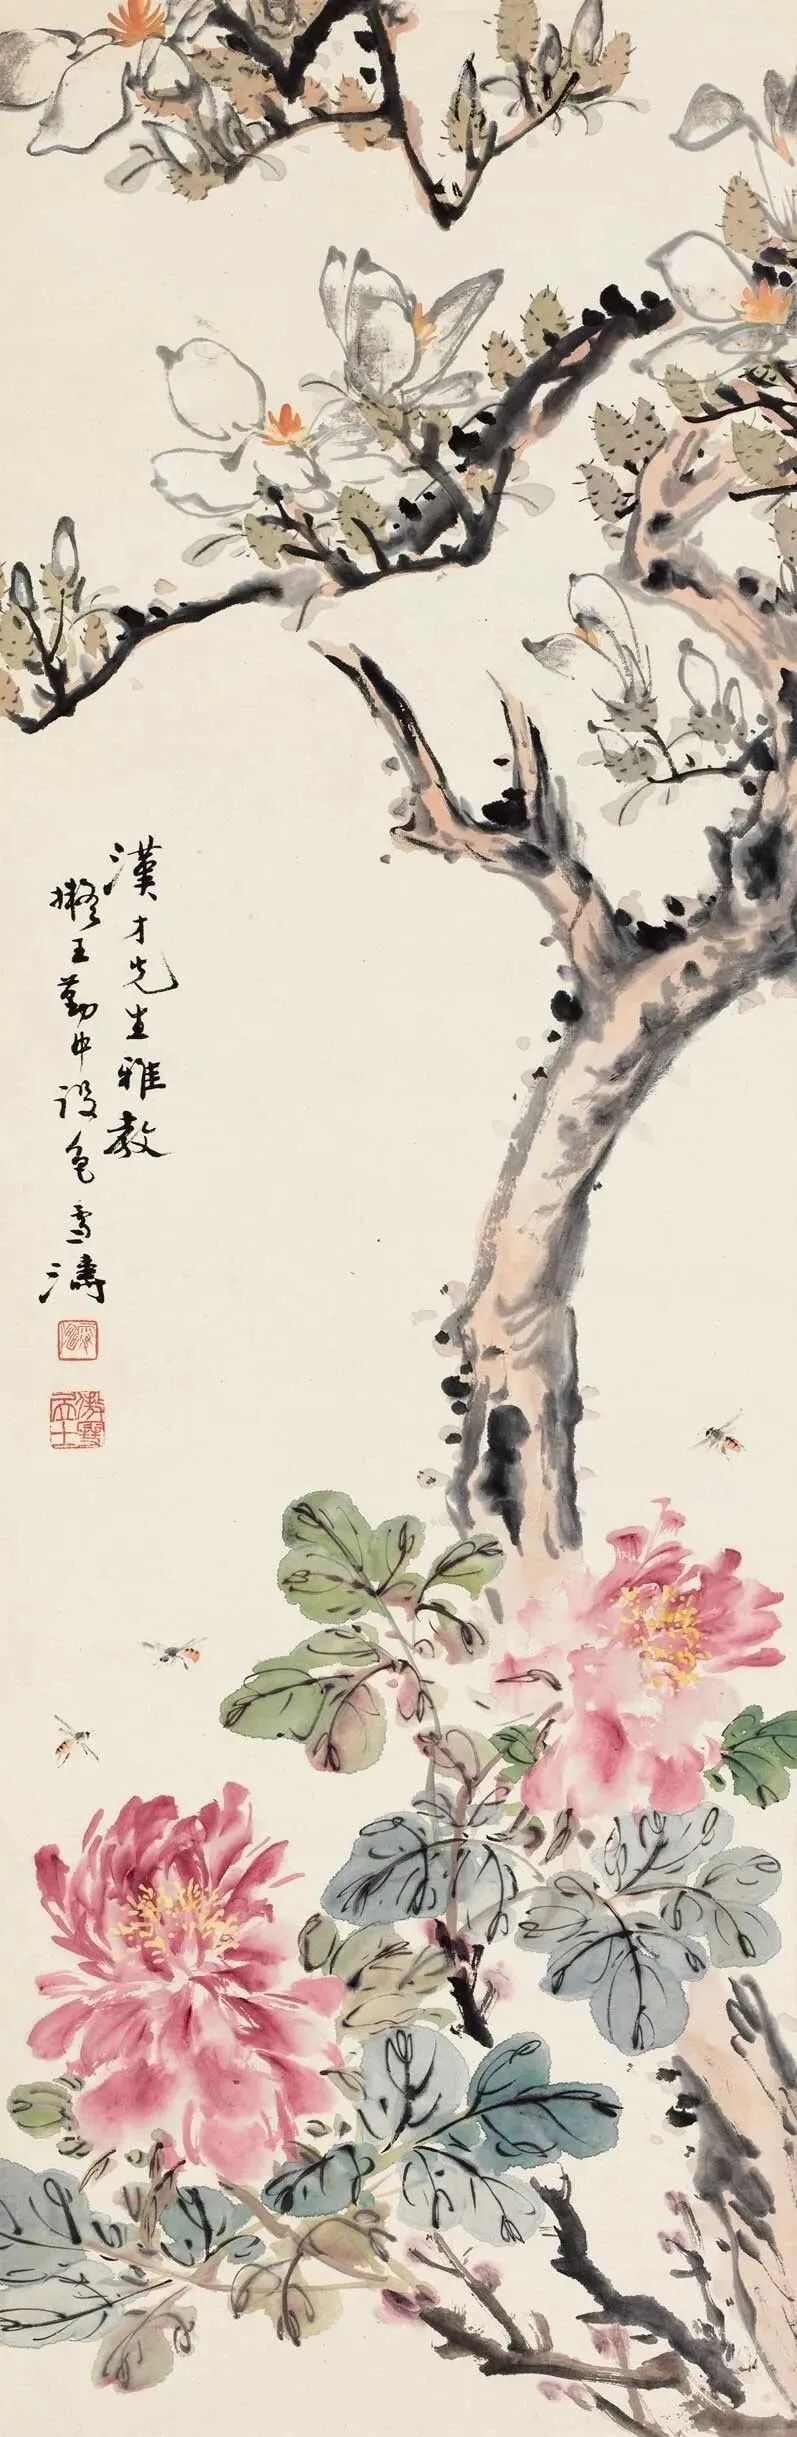 漢才先生雅教
擬王勤中設色 雪濤
傲霜居士